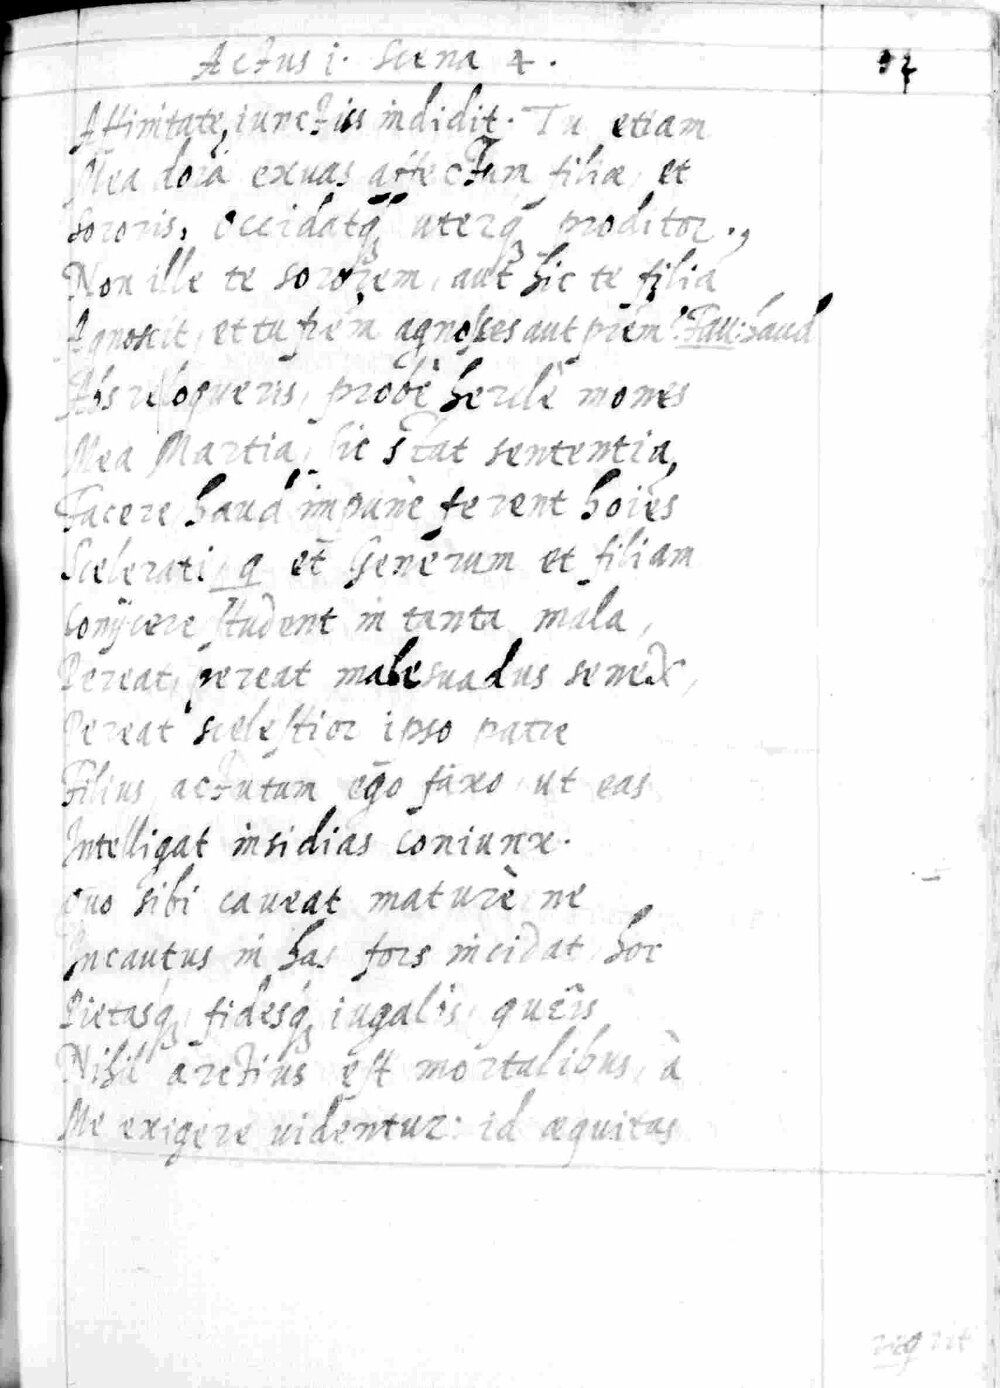 Actus i. Scena 4.
Affinitate, iunctius indidit. Tu etiam
Mea dora exuas affectum filiæ, et
sororis, occidatq₃ uterq₃ proditor.,
Non ille te sororem, aut hic te filiā
Agnoscit, et tu frēm agnosces aut prēm? Fau: haud
Abs re loqueris, probè herclè mones
Mea Martia, sic stat sententia,
Facere haud impunè ferent hoiēs
Scelerati, q et Generum et filiam
Conijcere student in tanta mala,
Pereat, pereat malesuadus senex,
Pereat scelestior ipso patre
Filius, actutum ego faxo, ut eas
Intelligat insidias coniunx.
quo sibi caveat maturè, ne
Incautus in has fors incidat, hoc
Pietasq₃, fidesq₃ iugalis, quêis
Nihil arctius est mortalibus, à
Me exigere videntur: id æquitas